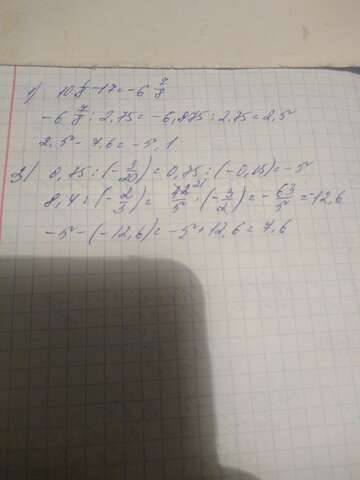 1) 10 1/8 - 17 = -6 7/8
-6 7/8 : 2,75 = -6,875 : 2,75 = 2,5
2,5 - 7,6 = -5,1
2) 0,75 : (-3/20) = 0,75 : (-0,15) = -5
8,4 : (-2/3) = 42/5 · (-3/2) = -63/5 = -12,6
-5 - (-12,6) = -5 + 12,6 = 7,6